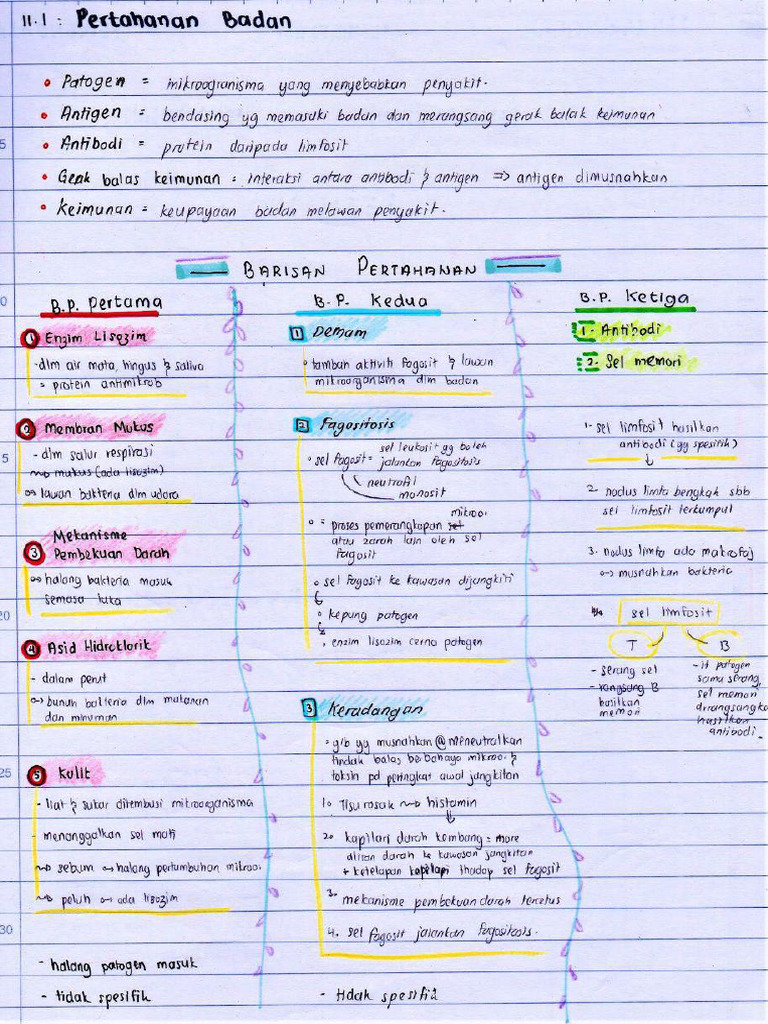 11.1 : Pertahanan Badan
• Patogen = mikroogranisma yang menyebabkan penyakit.
• Antigen = bendasing yg memasuki badan dan merangsang gerak balak keimunan
• Antibodi = protein daripada limfosit
• Gerak balas keimunan = interaksi antara antibodi & antigen => antigen dimusnahkan
• Keimunan = keupayaan badan melawan penyakit.
BARISAN PERTAHANAN
B.P. Pertama
1 Enzim Lisozim
- dlm air mata, hingus & saliva
= protein antimikrob
2 Membran Mukus
- dlm salur respirasi
mukus (ada lisozim)
lawan bakteria dlm udara
3 Mekanisme
Pembekuan Darah
halang bakteria masuk
semasa luka
4 Asid Hidroklorik
- dalam perut
bunuh bakteria dlm makanan
dan minuman
5 Kulit
- liat & sukar ditembusi mikroorganisma
- menanggalkan sel mati
sebum halang pertumbuhan mikroo.
peluh ada lisozim
- halang patogen masuk
- tidak spesifik
B.P. Kedua
1 Demam
• tambah aktiviti fagosit & lawan
mikroorganisma dlm badan
2 Fagositosis
• sel fagosit = sel leukosit yg boleh
jalankan fagositosis
neutrofil
monosit
• = proses pemerangkapan mikroo.
atau zarah lain oleh sel
fagosit
• sel fagosit ke kawasan dijangkiti
• kepung patogen
• enzim lisozim cerna patogen
3 Keradangan
• g/b yg musnahkan @ meneutralkan
tindak balas berbahaya mikroo. &
toksin pd peringkat awal jangkitan
1. Tisu rosak histamin
2. kapilari darah kembang = more
aliran darah ke kawasan jangkitan
+ ketelapan kapilari thadap sel fagosit
3. mekanisme pembekuan darah tercetus
4. sel fagosit jalankan fagositosis.
- tidak spesifik
B.P. Ketiga
1. Antibodi
2. Sel memori
1. sel limfosit hasilkan
antibodi (yg spesifik)
2. nodus limfa bengkak sbb
sel limfosit terkumpul
3. nodus limfa ada makrofaj
musnahkan bakteria
sel limfosit
T
- serang sel
- rangsang B
hasilkan
memori
B
- if patogen
sama serang,
sel memori
dirangsang
hasilkan
antibodi.